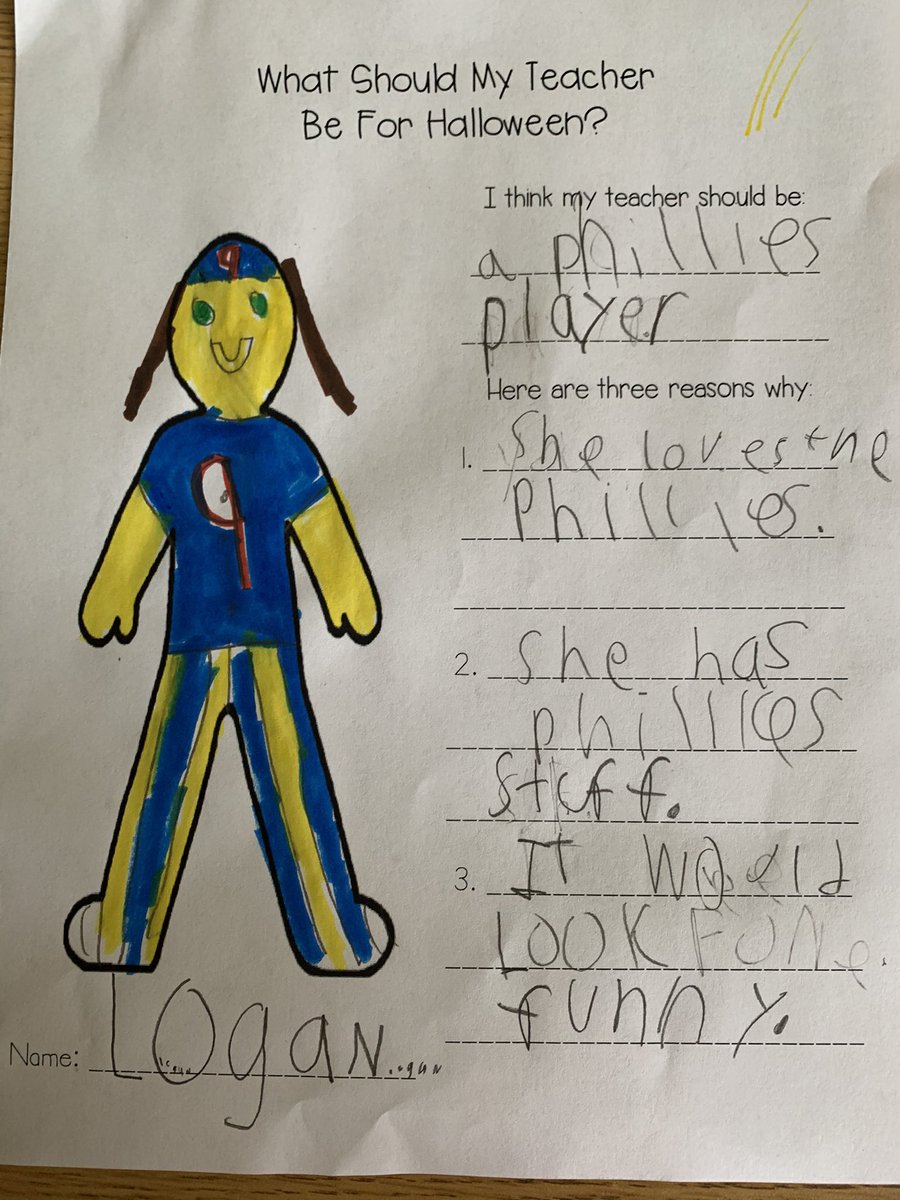 What Should My Teacher
Be For Halloween?
I think my teacher should be:
a phillies
player
Here are three reasons why:
1. She loves the
Phillies.
2. She has
phillies
stuff.
3. It would
LOOK FONe.
funny.
9
9
Name: LOgaN